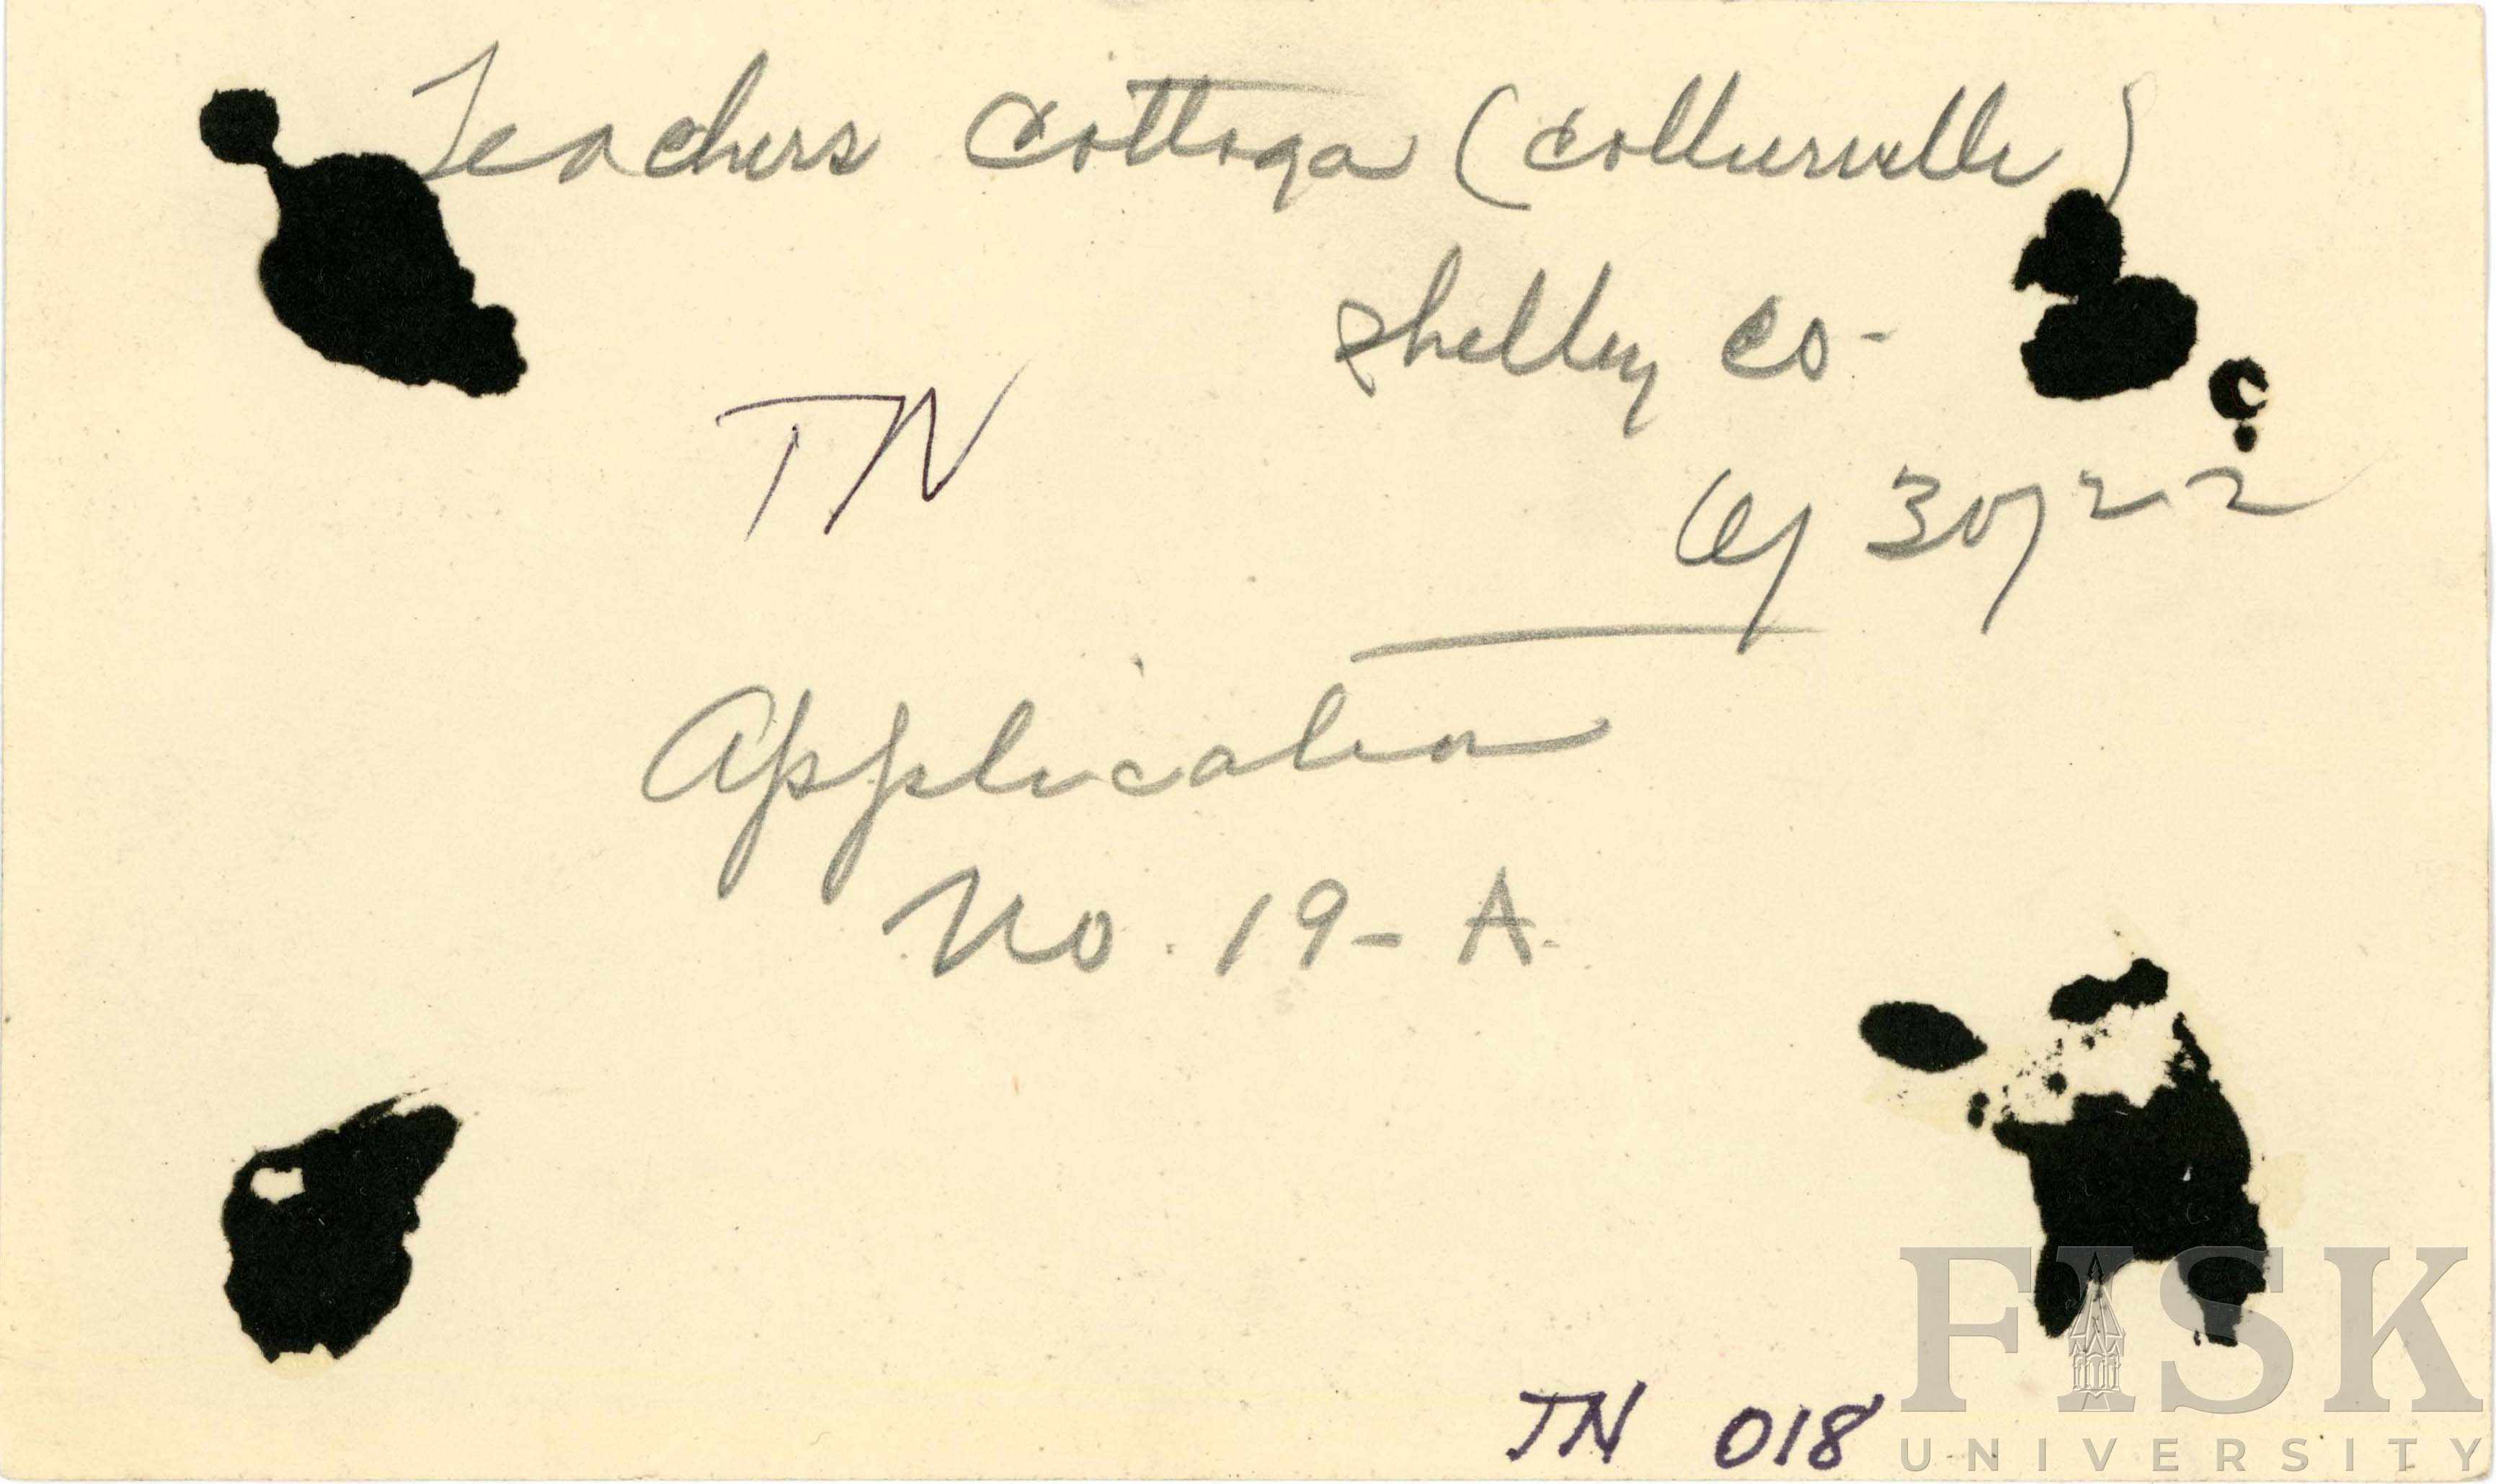 Teachers Cottage (Collierville)
Shelby Co-
TN
6/30/22
Application
No. 19-A.
TN 018
FISK
UNIVERSITY